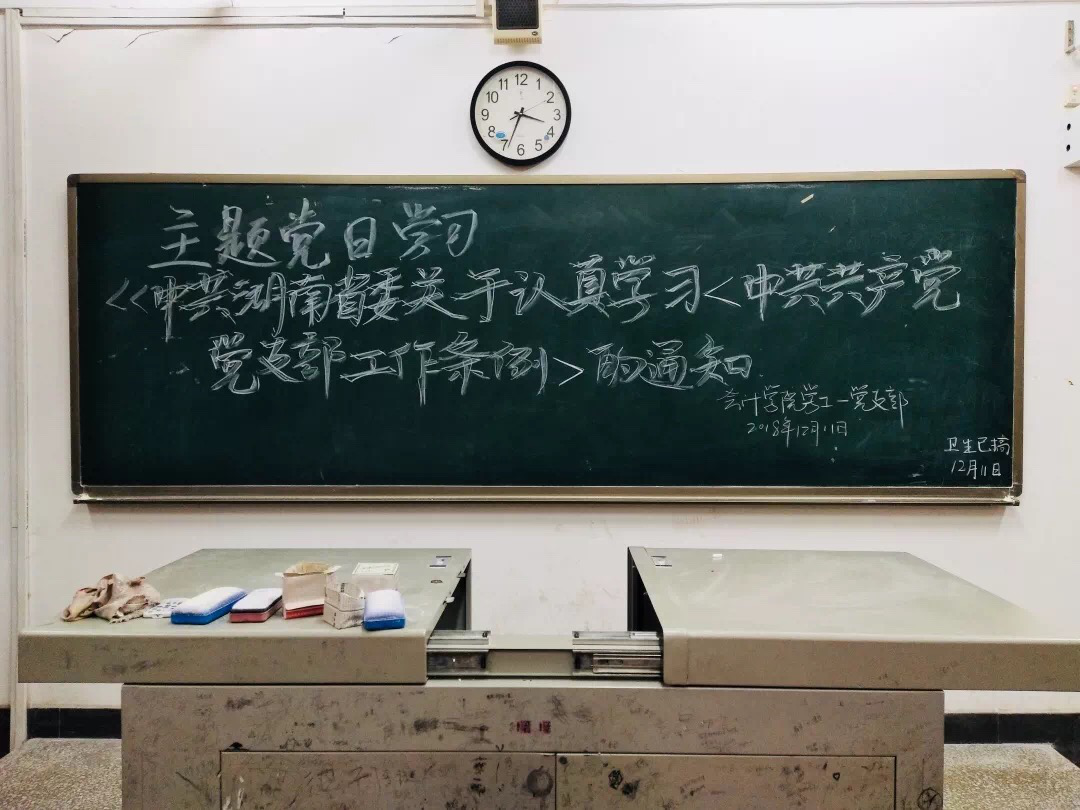 主题党日学习
<<中共湖南省委关于认真学习<中共共产党
党支部工作条例>的通知
会计学院学工一党支部
2018年12月11日
卫生已搞
12月11日
12
1
2
3
4
5
6
7
8
9
10
11